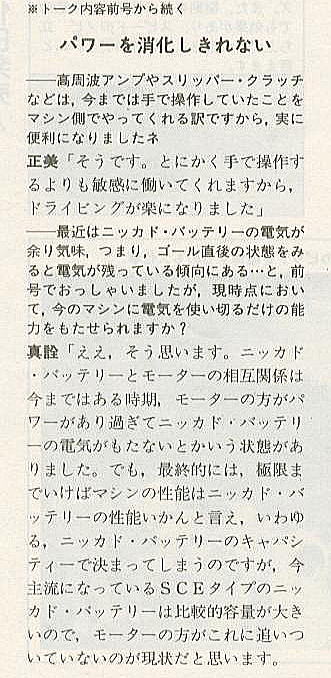 ※トーク内容前号から続く
パワーを消化しきれない
――高周波アンプやスリッパー・クラッチ
などは，今までは手で操作していたことを
マシン側でやってくれる訳ですから，実に
便利になりましたネ
正美「そうです。とにかく手で操作す
るよりも敏感に働いてくれますから，
ドライビングが楽になりました」
――最近はニッカド・バッテリーの電気が
余り気味，つまり，ゴール直後の状態をみ
ると電気が残っている傾向にある…と，前
号でおっしゃいましたが，現時点におい
て，今のマシンに電気を使い切るだけの能
力をもたせられますか？
真詮「ええ，そう思います。ニッカド
・バッテリーとモーターの相互関係は
今まではある時期，モーターの方がパ
ワーがあり過ぎてニッカド・バッテリ
ーの電気がもたないとかいう状態があ
りました。でも，最終的には，極限ま
でいけばマシンの性能はニッカド・バ
ッテリーの性能いかんと言え，いわゆ
る，ニッカド・バッテリーのキャパシ
ティーで決まってしまうのですが，今
主流になっているＳＣＥタイプのニッ
カド・バッテリーは比較的容量が大き
いので，モーターの方がこれに追いつ
いていないのが現状だと思います。